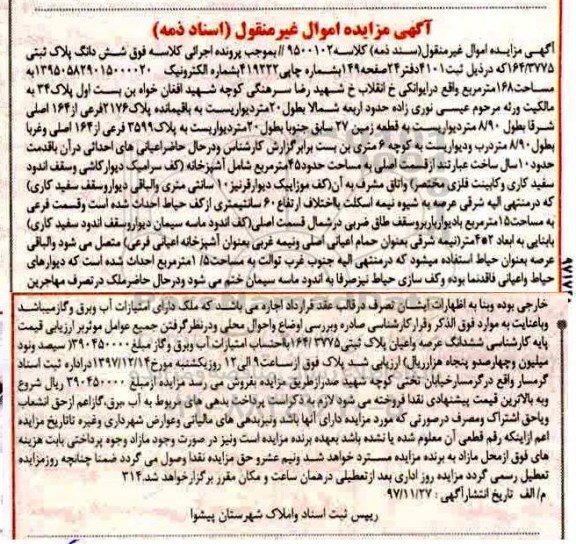 آگهی مزایده اموال غیرمنقول (اسناد ذمه)
آگهی مزایده اموال غیرمنقول(سند ذمه) کلاسه۹۵۰۰۱۰۲ // بموجب پرونده اجرائی کلاسه فوق شش دانگ پلاک ثبتی
۱۶۴/۳۷۷۵که درذیل ثبت۴۱۰۱دفتر۲۴صفحه۱۴۹بشماره چاپی۴۱۹۲۲۲بشماره الکترونیک ۱۳۹۵۰۵۸۲۹۰۱۵۰۰۰۰۲۰به
مساحت۱۶۸مترمربع واقع درایوانکی خ انقلاب خ شهید رضا سرهنگی کوچه شهید افغان خواه بن بست اول پلاک۳۴ به
مالکیت ورثه مرحوم عیسی نوری زاده حدود اربعه شمالا بطول ۲۰متردیواریست به باقیمانده پلاک۲۱۷۶فرعی از۱۶۴ اصلی
شرقا بطول ۸/۹۰ متردیواریست به قطعه زمین ۲۷ سابق جنوبا بطول۲۰متردیواریست به پلاک۳۵۹۹ فرعی از۱۶۴ اصلی وغربا
بطول ۸/۹۰ متردرب ودیواریست به کوچه ۶ متری بن بست برابرگزارش کارشناس ودرحال حاضراعیانی های احداثی درآن باقدمت
حدود۱۰سال ساخت عبارتند ازقسمت اصلی به مساحت حدود۴۵مترمربع شامل آشپزخانه (کف سرامیک دیوارکاشی وسقف اندود
سفید کاری وکابینت فلزی مختصر) واتاق مشرف به آن(کف موزاییک دیوارقرنیز۱۰ سانتی متری والباقی دیواروسقف سفید کاری)
که درمنتهی الیه شرقی عرصه به شیوه نیمه اسکلت باختلاف ارتفاع۶۰ سانتیمتری ازکف حیاط احداث شده است وقسمت فرعی
به مساحت۱۵مترمربع بادیوارباربروسقف طاق ضربی درشمال قسمت اصلی(کف اندود ماسه سیمان دیواروسقف اندود سفید کاری)
بابنایی به ابعاد ۲*۴متر(نیمه شرقی بعنوان حمام اعیانی اصلی ونیمه غربی بعنوان آشپزخانه اعیانی فرعی) متصل می شود والباقی
عرصه بعنوان حیاط استفاده میشود که درمنتهی الیه جنوب غرب توالت به مساحت۱/۵ مترمربع احداث شده است که دیوارهای
حیاط واعیانی فاقدنما بوده وکف سازی حیاط نیزصرفا به اندود ماسه سیمان ختم می شود ودرحال حاضرملک درتصرف مهاجرین
خارجی بوده وبنا به اظهارات ایشان تصرف درقالب عقد قرارداد اجاره می باشد که ملک دارای امتیازات آب وبرق وگازمیباشد
وباعنایت به موارد فوق الذکر وقرارکارشناسی صادره وبررسی اوضاع واحوال محلی ودرنظرگرفتن جمیع عوامل موثربر ارزیابی قیمت
پایه کارشناسی ششدانگ عرصه واعیان پلاک ثبتی۱۶۴/۳۷۷۵بااحتساب امتیازات آب وبرق وگاز مبلغ ۳۹۰۴۵۰۰۰۰(سیصد ونود
میلیون وچهارصدو پنجاه هزارریال) ارزیابی شد پلاک فوق ازساعت۹الی ۱۲ روزیکشنبه مورخ۱۳۹۷/۱۲/۱۴دراداره ثبت اسناد
گرمسار واقع درگرمسارخیابان تختی کوچه شهید صدرازطریق مزایده بفروش می رسد مزایده ازمبلغ ۳۹۰۴۵۰۰۰۰ ریال شروع
وبه بالاترین قیمت پیشنهادی نقدا فروخته می شود لازم به ذکراست پرداخت بدهی های مربوط به آب ،برق،گازاعم ازحق انشعاب
ویاحق اشتراک ومصرف درصورتی که مورد مزایده دارای آنها باشد ونیزبدهی های مالیاتی وعوارض شهرداری وغیره تاتاریخ مزایده
اعم ازاینکه رقم قطعی آن معلوم شده یا نشده باشد بعهده برنده مزایده است ونیز در صورت وجود مازاد وجوه پرداختی بابت هزینه
های فوق ازمحل مازاد به برنده مزایده مسترد خواهد شد ونیم عشرو حق مزایده نقدا وصول می گردد ضمنا چنانچه روزمزایده
تعطیل رسمی گردد مزایده روز اداری بعد ازتعطیلی درهمان ساعت و مکان مقرر برگزارخواهد شد.۳۱۴
م/الف تاریخ انتشارآگهی : ۹۷/۱۱/۲۷
رییس ثبت اسناد واملاک شهرستان پیشوا